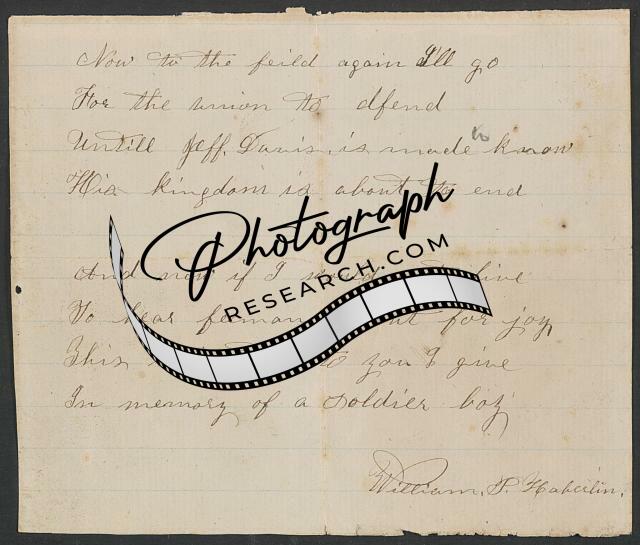 Now to the feild again I'll go
For the union to dfend
Untill Jeff. Davis is made to know
His kingdom is about to end
Photograph
RESEARCH.COM
And now if I
To hear for joy
This to you I give
In memory of a soldier boy
William. P. Haberlin.